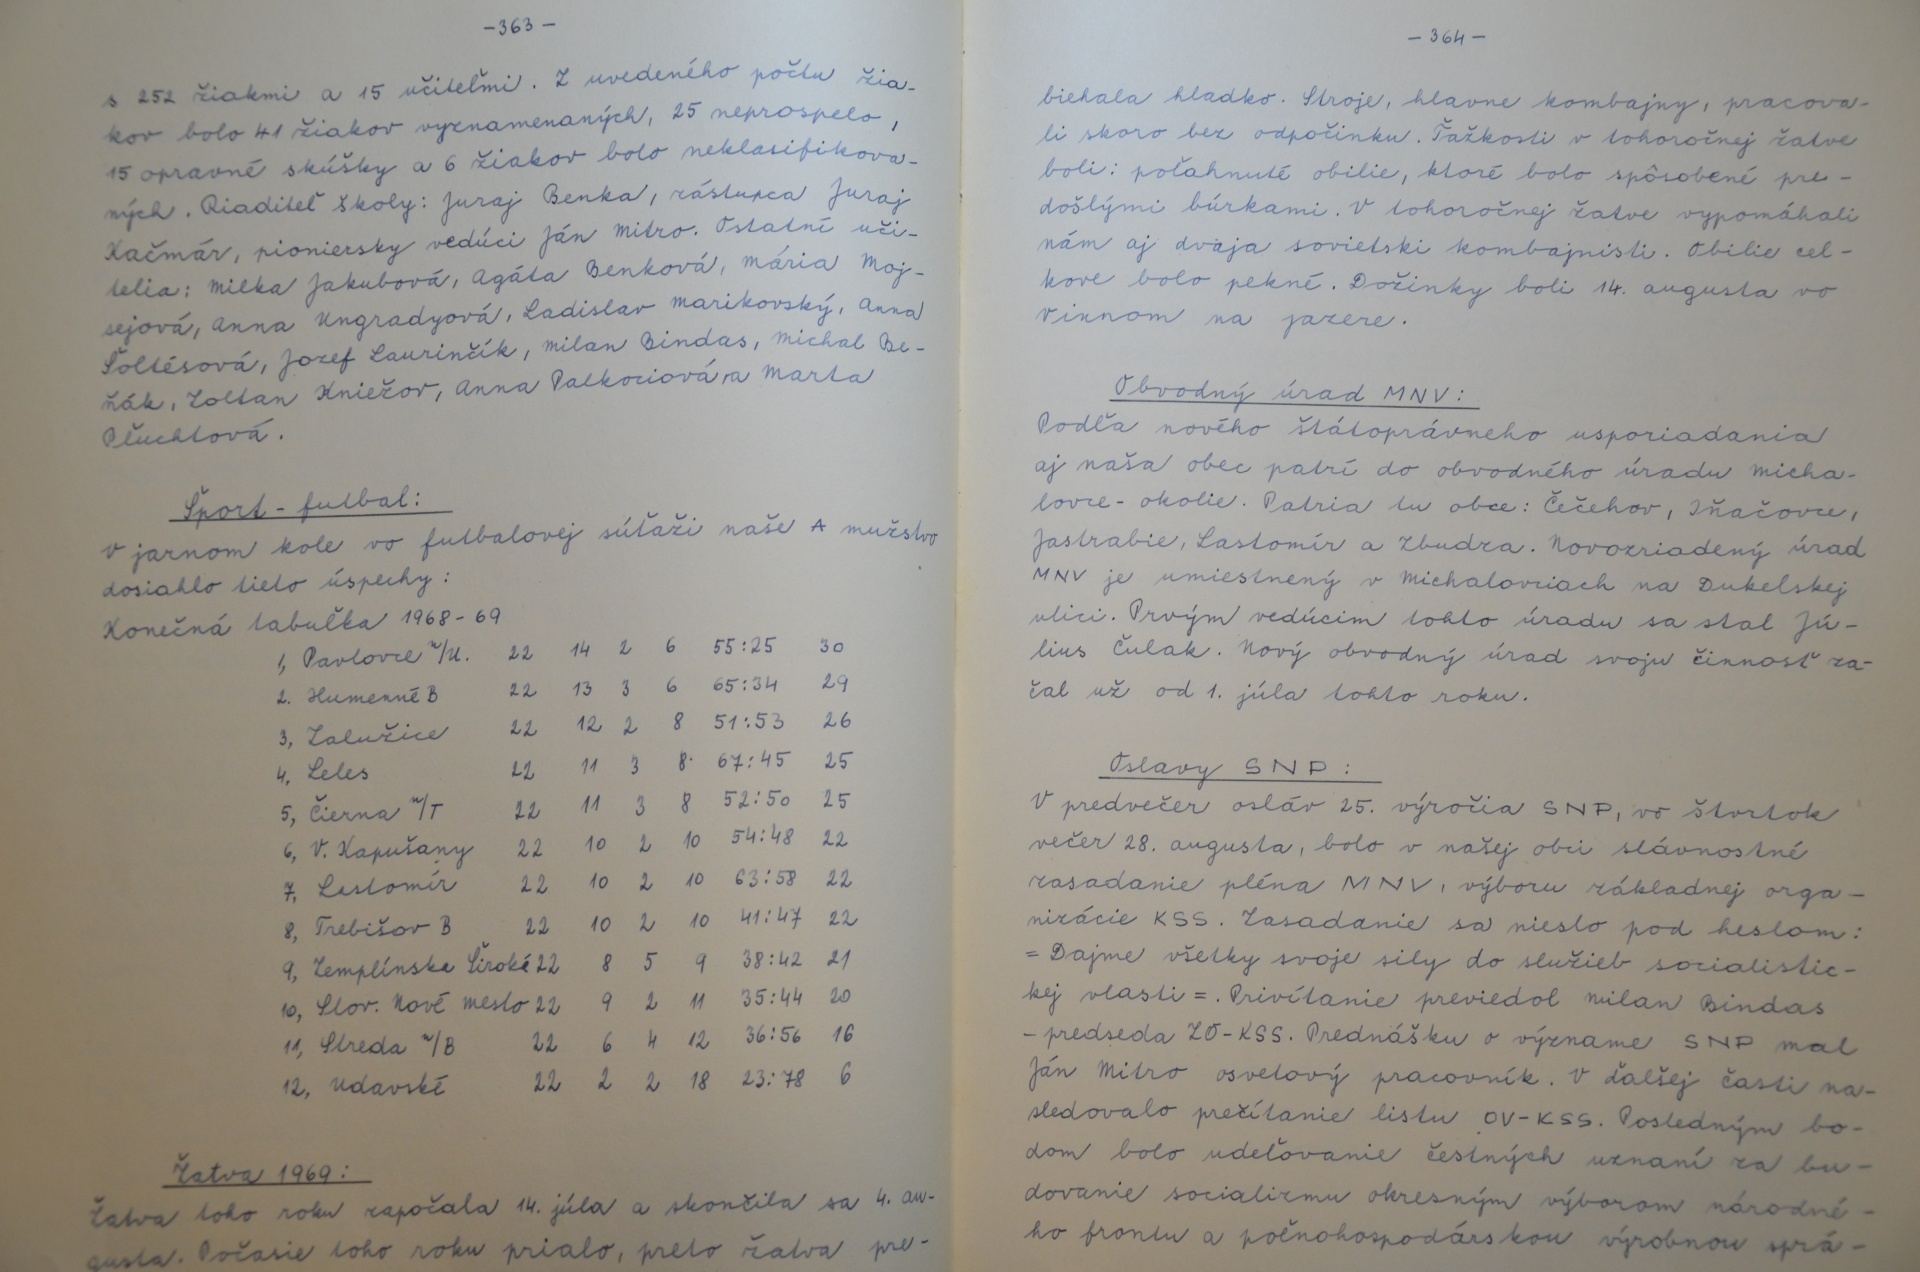 -363-
s 252 žiakmi a 15 učiteľmi. Z uvedeného počtu žia-
kov bolo 41 žiakov vyznamenaných, 25 neprospelo,
15 opravné skúšky a 6 žiakov bolo neklasifikova-
ných. Riaditeľ školy: Juraj Benka, zástupca Juraj
Kačmár, pioniersky vedúci Ján Mitro. Ostatní uči-
telia: Milka Jakubová, Agáta Benková, Mária Moj-
sejová, Anna Ungradyová, Ladislav Marikovský, Anna
Šoltésová, Jozef Laurinčík, Milan Bindas, Michal Be-
ňák, Zoltan Kniežov, Anna Palkociová, a Marta
Pľuchtová.
Šport - futbal:
V jarnom kole vo futbalovej súťaži naše A mužstvo
dosiahlo tieto úspechy:
Konečná tabuľka 1968-69
1, Pavlovce n/U. 22 14 2 6 55:25 30
2. Humenné B 22 13 3 6 65:34 29
3, Zalužice 22 12 2 8 51:53 26
4. Leles 22 11 3 8 67:45 25
5, Čierna n/T 22 11 3 8 52:50 25
6, V. Kapušany 22 10 2 10 54:48 22
7. Lastomír 22 10 2 10 63:58 22
8, Trebišov B 22 10 2 10 41:47 22
9, Zemplínske Široké 22 8 5 9 38:42 21
10, Slov. Nové mesto 22 9 2 11 35:44 20
11, Streda n/B 22 6 4 12 36:56 16
12, Udavské 22 2 2 18 23:78 6
Žatva 1969:
Žatva toho roku započala 14. júla a skončila sa 4. au-
gusta. Počasie toho roku prialo, preto žatva pre-
-364-
biehala hladko. Stroje, hlavne kombajny, pracova-
li skoro bez odpočinku. Ťažkosti v tohoročnej žatve
boli: poľahnuté obilie, ktoré bolo spôsobené pre-
došlými búrkami. V tohoročnej žatve vypomáhali
nám aj dvaja sovietski kombajnisti. Obilie cel-
kove bolo pekné. Dožinky boli 14. augusta vo
Vinnom na jazere.
Obvodný úrad MNV:
Podľa nového štátoprávneho usporiadania
aj naša obec patrí do obvodného úradu Micha-
lovce - okolie. Patria tu obce: Čečehov, Iňačovce,
Jastrabie, Lastomír a Zbudza. Novozriadený úrad
MNV je umiestnený v Michalovciach na Dukelskej
ulici. Prvým vedúcim tohto úradu sa stal Jú-
lius Čulak. Nový obvodný úrad svoju činnosť za-
čal už od 1. júla tohto roku.
Oslavy SNP:
V predvečer osláv 25. výročia SNP, vo štvrtok
večer 28. augusta, bolo v našej obci slávnostné
zasadanie pléna MNV, výboru základnej orga-
nizácie KSS. Zasadanie sa nieslo pod heslom:
= Dajme všetky svoje sily do služieb socialistic-
kej vlasti =. Privítanie previedol Milan Bindas
- predseda ZO-KSS. Prednášku o význame SNP mal
Ján Mitro osvetový pracovník. V ďalšej časti na-
sledovalo prečítanie listu OV-KSS. Posledným bo-
dom bolo udeľovanie čestných uznaní za bu-
dovanie socializmu okresným výborom národné-
ho frontu a poľnohospodárskou výrobnou sprá-